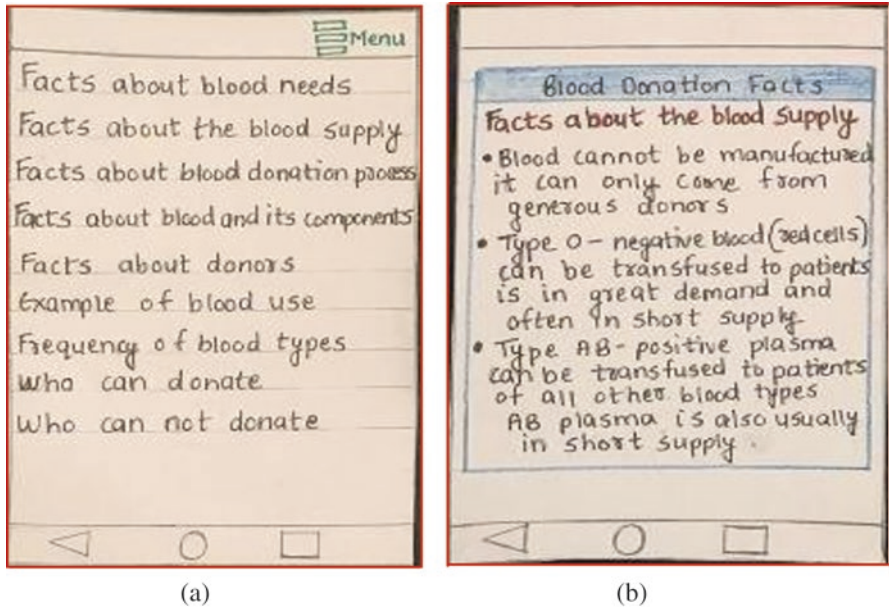 Menu
Facts about blood needs
Facts about the blood supply
Facts about blood donation process
Facts about blood and its components
Facts about donors
Example of blood use
Frequency of blood types
Who can donate
Who can not donate
(a)
Blood Donation Facts
Facts about the blood supply
• Blood cannot be manufactured
it can only come from
generous donors
• Type O - negative blood (red cells)
can be transfused to patients
is in great demand and
often in short supply
• Type AB - positive plasma
can be transfused to patients
of all other blood types
AB plasma is also usually
in short supply.
(b)